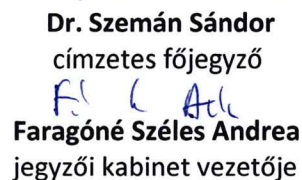 Dr. Szemán Sándor
címzetes főjegyző
Faragóné Széles Andrea
jegyzői kabinet vezetője